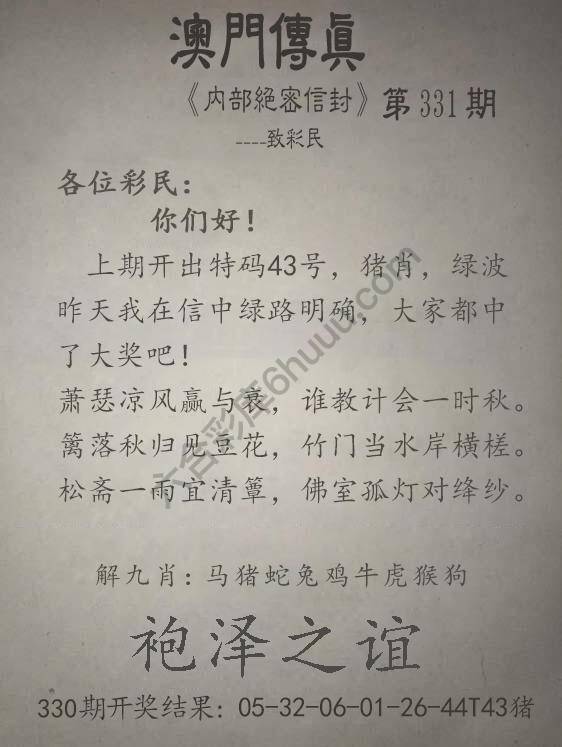 澳門傳眞
《内部絕密信封》第331期
----致彩民
各位彩民：
你们好！
上期开出特码43号，猪肖，绿波
昨天我在信中绿路明确，大家都中
了大奖吧！
萧瑟凉风赢与衰，谁教计会一时秋。
篱落秋归见豆花，竹门当水岸横槎。
松斋一雨宜清簟，佛室孤灯对绛纱。
解九肖：马猪蛇兔鸡牛虎猴狗
袍泽之谊
330期开奖结果：05-32-06-01-26-44T43猪
六合彩库6huuu.com